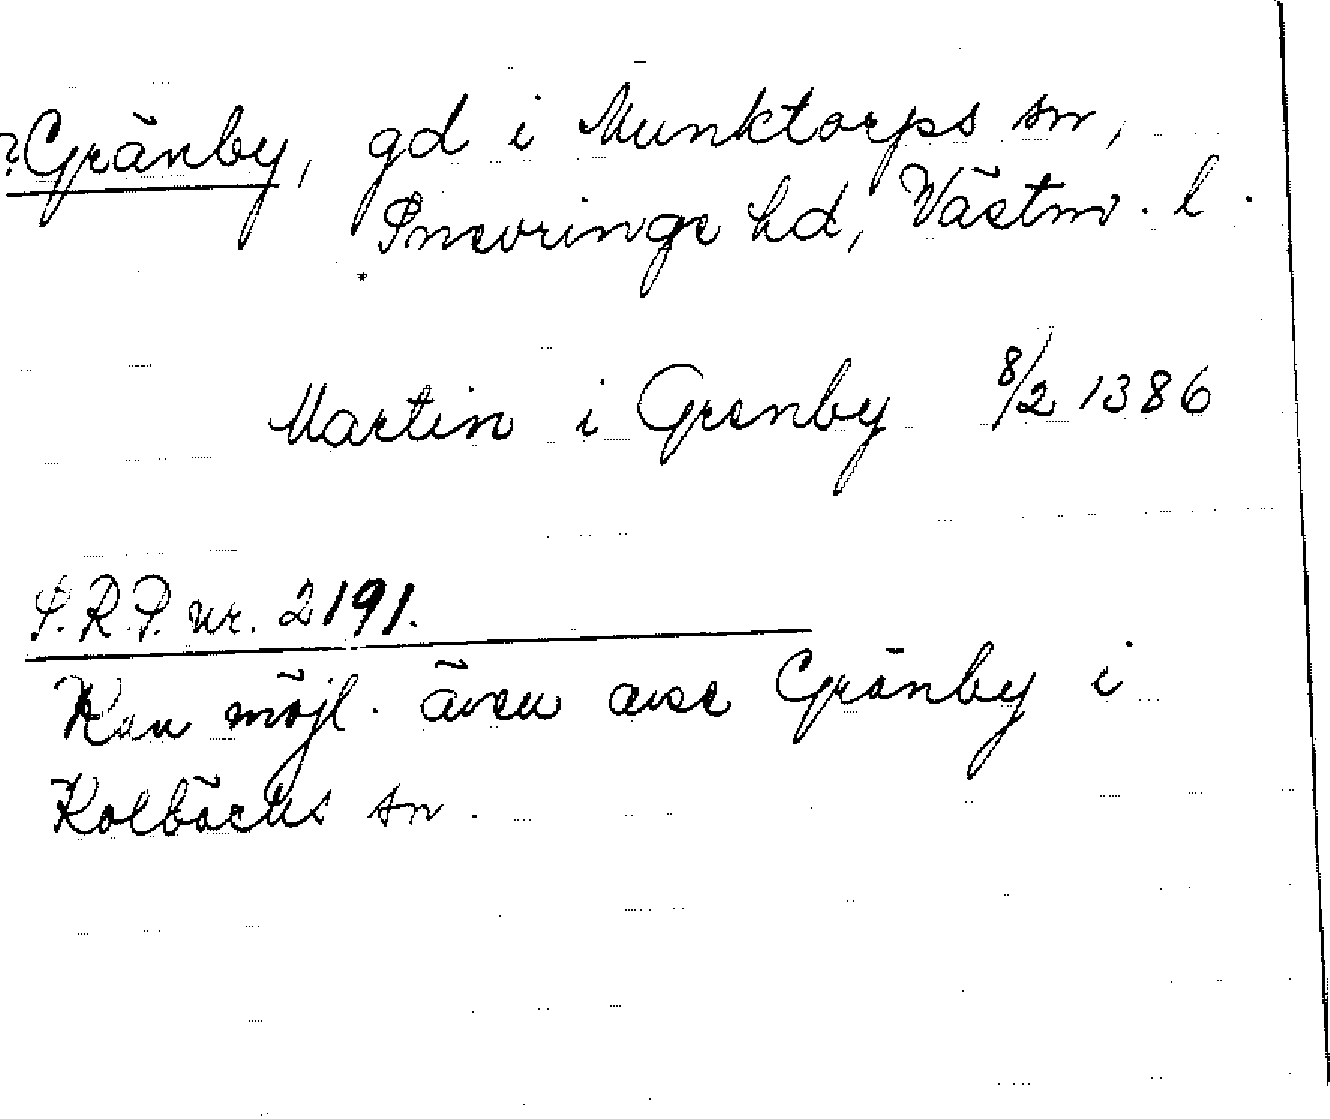 ?Gränby, gd i Munktorps sn,
Snevringe hd, Västm. l.
Martin i Grenby 8/2 1386
S.R.P. nr. 2191.
Kan möjl. även avse Gränby i
Kolbäcks sn.